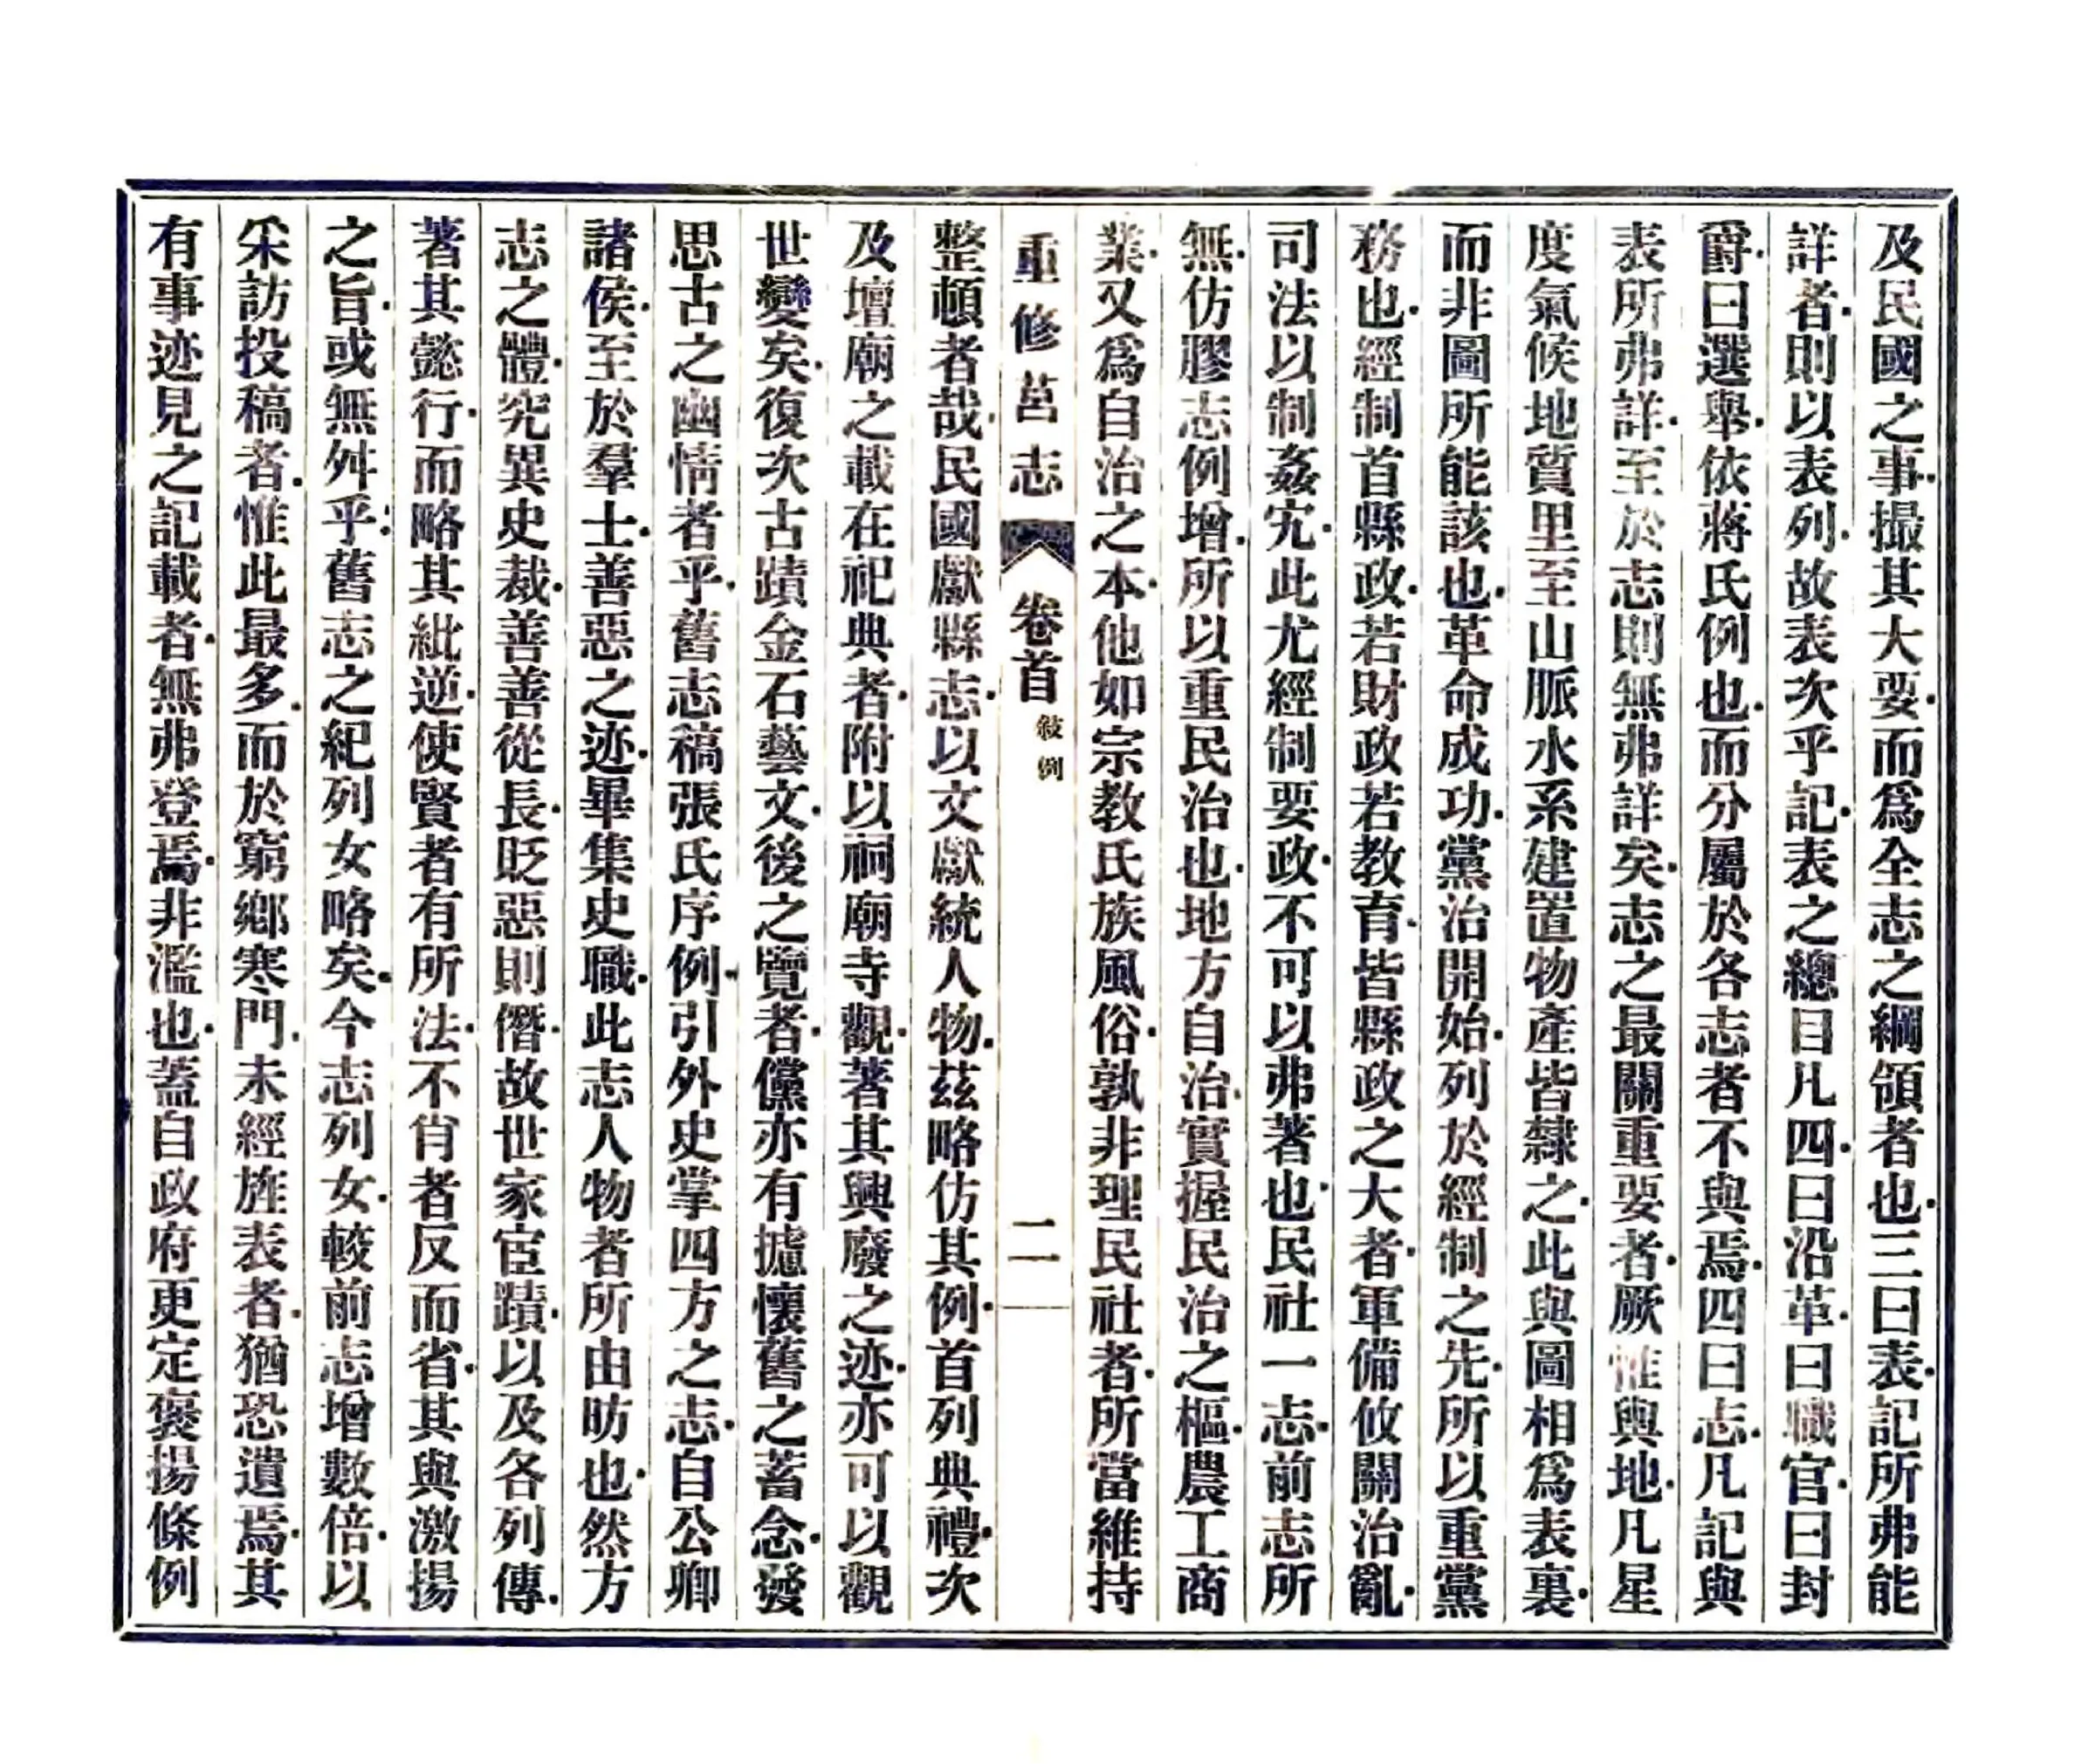 及民國之事撮其大要而爲全志之綱領者也三曰表記所弗能
詳者則以表列故表次乎記表之總目凡四曰沿革曰職官曰封
爵曰選舉依蔣氏例也而分屬於各志者不與焉四曰志凡記與
表所弗詳至於志則無弗詳矣志之最關重要者厥惟輿地凡星
度氣候地質里至山脈水系建置物產皆隸之此與圖相爲表裏
而非圖所能該也革命成功黨治開始列於經制之先所以重黨
務也經制首縣政若財政若教育皆縣政之大者軍備攸關治亂
司法以制姦宄此尤經制要政不可以弗著也民社一志前志所
無仿膠志例增所以重民治也地方自治實握民治之樞農工商
業又爲自治之本他如宗教氏族風俗孰非理民社者所當維持
重修莒志 卷首 敍例 二
整頓者哉民國獻縣志以文獻統人物茲略仿其例首列典禮次
及壇廟之載在祀典者附以祠廟寺觀著其興廢之迹亦可以觀
世變矣復次古蹟金石藝文後之覽者儻亦有攄懷舊之蓄念發
思古之幽情者乎舊志稿張氏序例引外史掌四方之志自公卿
諸侯至於羣士善惡之迹畢集史職此志人物者所由昉也然方
志之體究異史裁善善從長貶惡則僭故世家宦蹟以及各列傳
著其懿行而略其紕逆使賢者有所法不肖者反而省其與激揚
之旨或無舛乎舊志之紀列女略矣今志列女較前志增數倍以
采訪投稿者惟此最多而於窮鄉寒門未經旌表者猶恐遺焉其
有事迹見之記載者無弗登焉非濫也蓋自政府更定褒揚條例